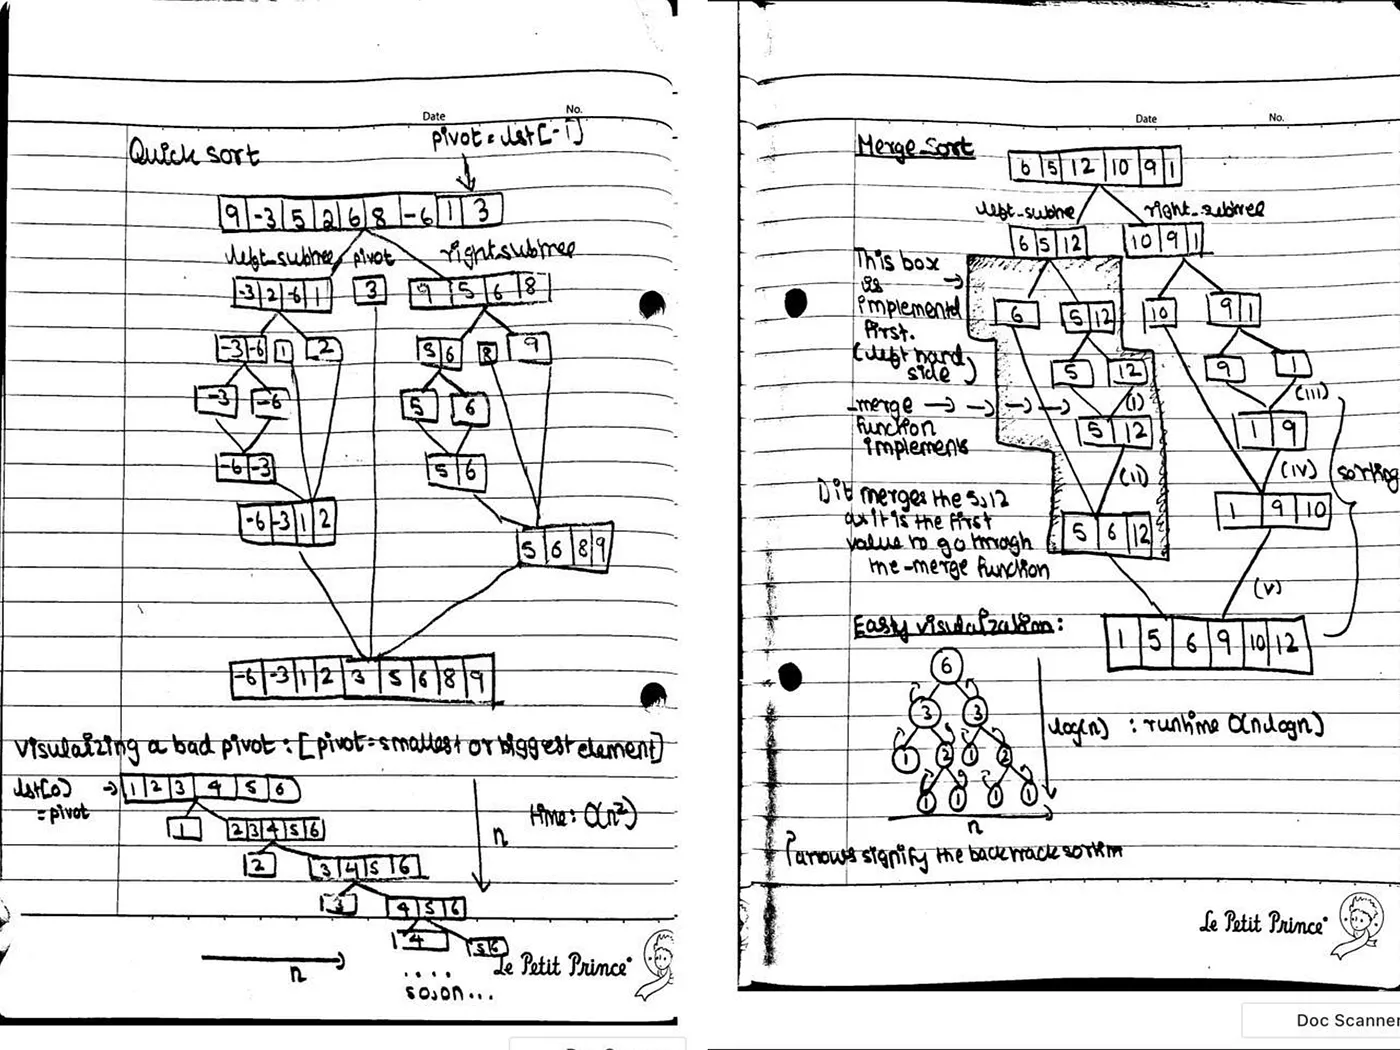 Date
No.
pivot = lst[-1]
Quick sort
9 -3 5 2 6 8 -6 1 3
left_subtree pivot right_subtree
-3 2 -6 1
3
9 5 6 8
-3 -6 1 2
5 6 8 9
-3 -6
5 6
-6 -3
5 6
-6 -3 1 2
5 6 8 9
-6 -3 1 2 3 5 6 8 9
visualizing a bad pivot : [pivot = smallest or biggest element]
lst[0] → 1 2 3 4 5 6
= pivot
1
2 3 4 5 6
time: O(n²)
n
2
3 4 5 6
3
4 5 6
4
5 6
n
....
so on ...
Le Petit Prince
Date
No.
Merge_Sort
6 5 12 10 9 1
left_subtree
right_subtree
6 5 12
10 9 1
This box
is
implemented
first.
(left hand
side)
6
5 12
10
9 1
5
12
9
1
_merge → → → →
function
implements
(i)
(iii)
5 12
1 9
(ii)
(iv)
sorting
1) it merges the 5,12
as it is the first
value to go through
the _merge function
5 6 12
1 9 10
(v)
Easy visualization:
1 5 6 9 10 12
6
3 3
1 2 1 2
1 1 1 1
n
log(n) : runtime O(n logn)
arrows signify the backtrack
Le Petit Prince
Doc Scanner